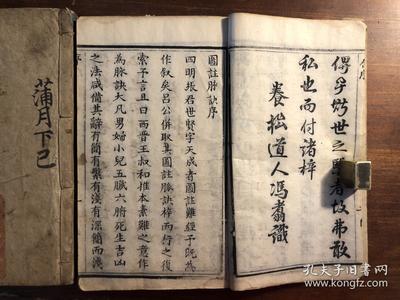 世之者故弗敢
私也而付諸梓
養松道人馮翥識
圖註脉訣序
四明張君世賢字天成者圖註難經予既為
作敘矣呂公併取其圖註脉訣梓而行之復
索予言且曰西晉王叔和推本素難之意作
為脉訣大凡男婦小兒五臟六腑死生吉凶
之法咸備其辭有簡有繁有淺有深簡而淺
蒲月下已
孔夫子旧书网